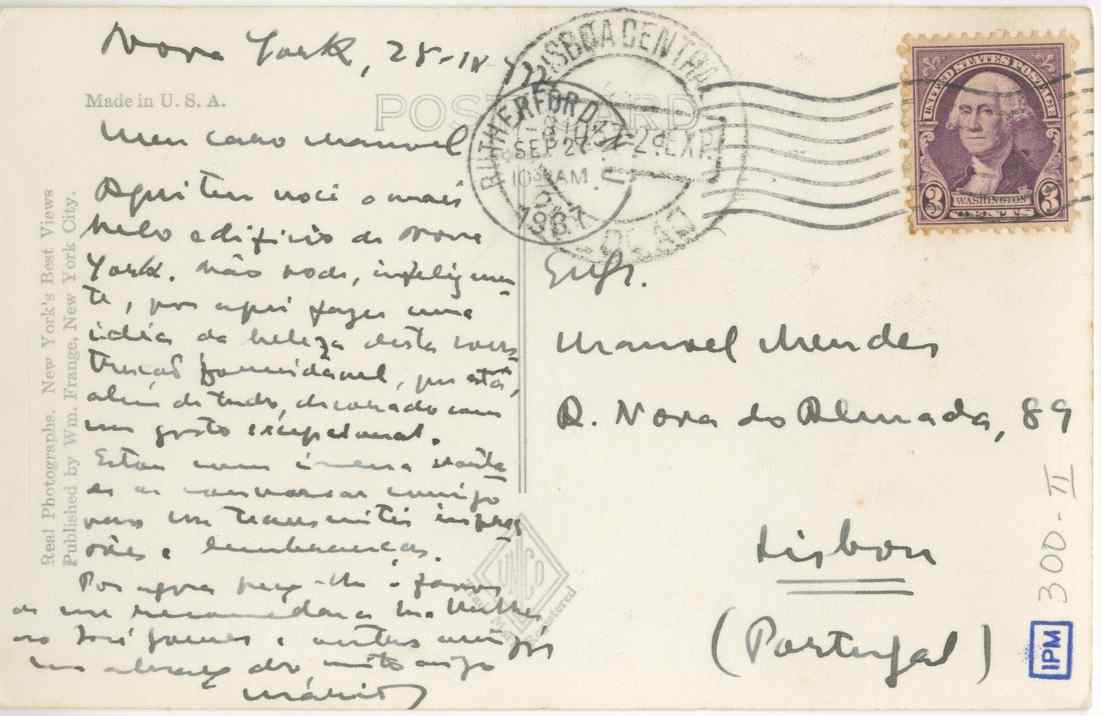 Nova York, 28-IX-
Made in U. S. A.
POST CARD
Meu caro Manuel
Aqui tem você o mais
belo edifício de Nova
York. Não pode, infelizmen-
te, por aqui fazer uma
idéia da beleza desta cons-
trução formidável, que está,
além de tudo, decorado com
um gosto excepcional.
Estou com imensa vonta-
de de conversar consigo
para lhe transmitir impres-
sões e lembranças.
Por agora peço-lhe o favor
de me recomendar a sua Mulher
ao José Gomes e outros amigos
um abraço do muito amigo
Mário
Real Photographs. New York's Best Views
Published by Wm. Frange, New York City.
LISBOA CENTRAL
RUTHERFORD
SEP 27
AM
1937
UNITED STATES POSTAGE
3 WASHINGTON 3
CENTS
Manuel Mendes
R. Nova do Almada, 89
Lisbon
(Portugal)
300-II
IPM